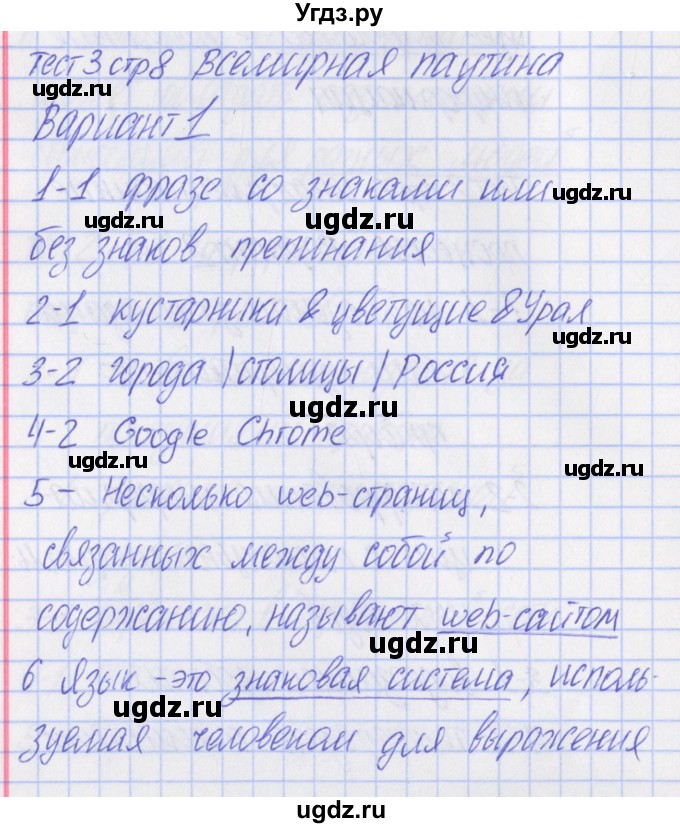 Угдз.ру
тест 3 стр 8 всемирная паутина
ugdz.ru
Вариант 1
1-1 фразе со знаками или ugdz.ru
ugdz.ru ugdz.ru
без знаков препинания
2-1 кустарники & цветущие & Урал
ugdz.ru
3-2 города | столицы | Россия
ugdz.ru
4-2 Google Chrome
ugdz.ru ugdz.ru
5 - Несколько web-страниц,
связанных между собой по
содержанию, называют web-сайтом
ugdz.ru
6 Язык - это знаковая система, исполь-
ugdz.ru
зуемая человеком для выражения
ugdz.ru